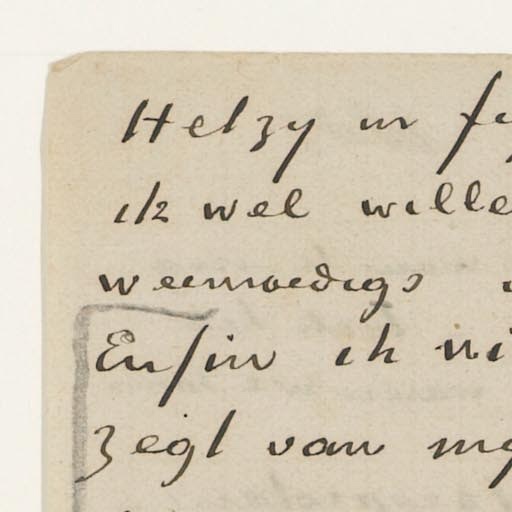 Hetzy in fi
ik wel wille
weemoedigs
Enfin ik ni
zegt van my